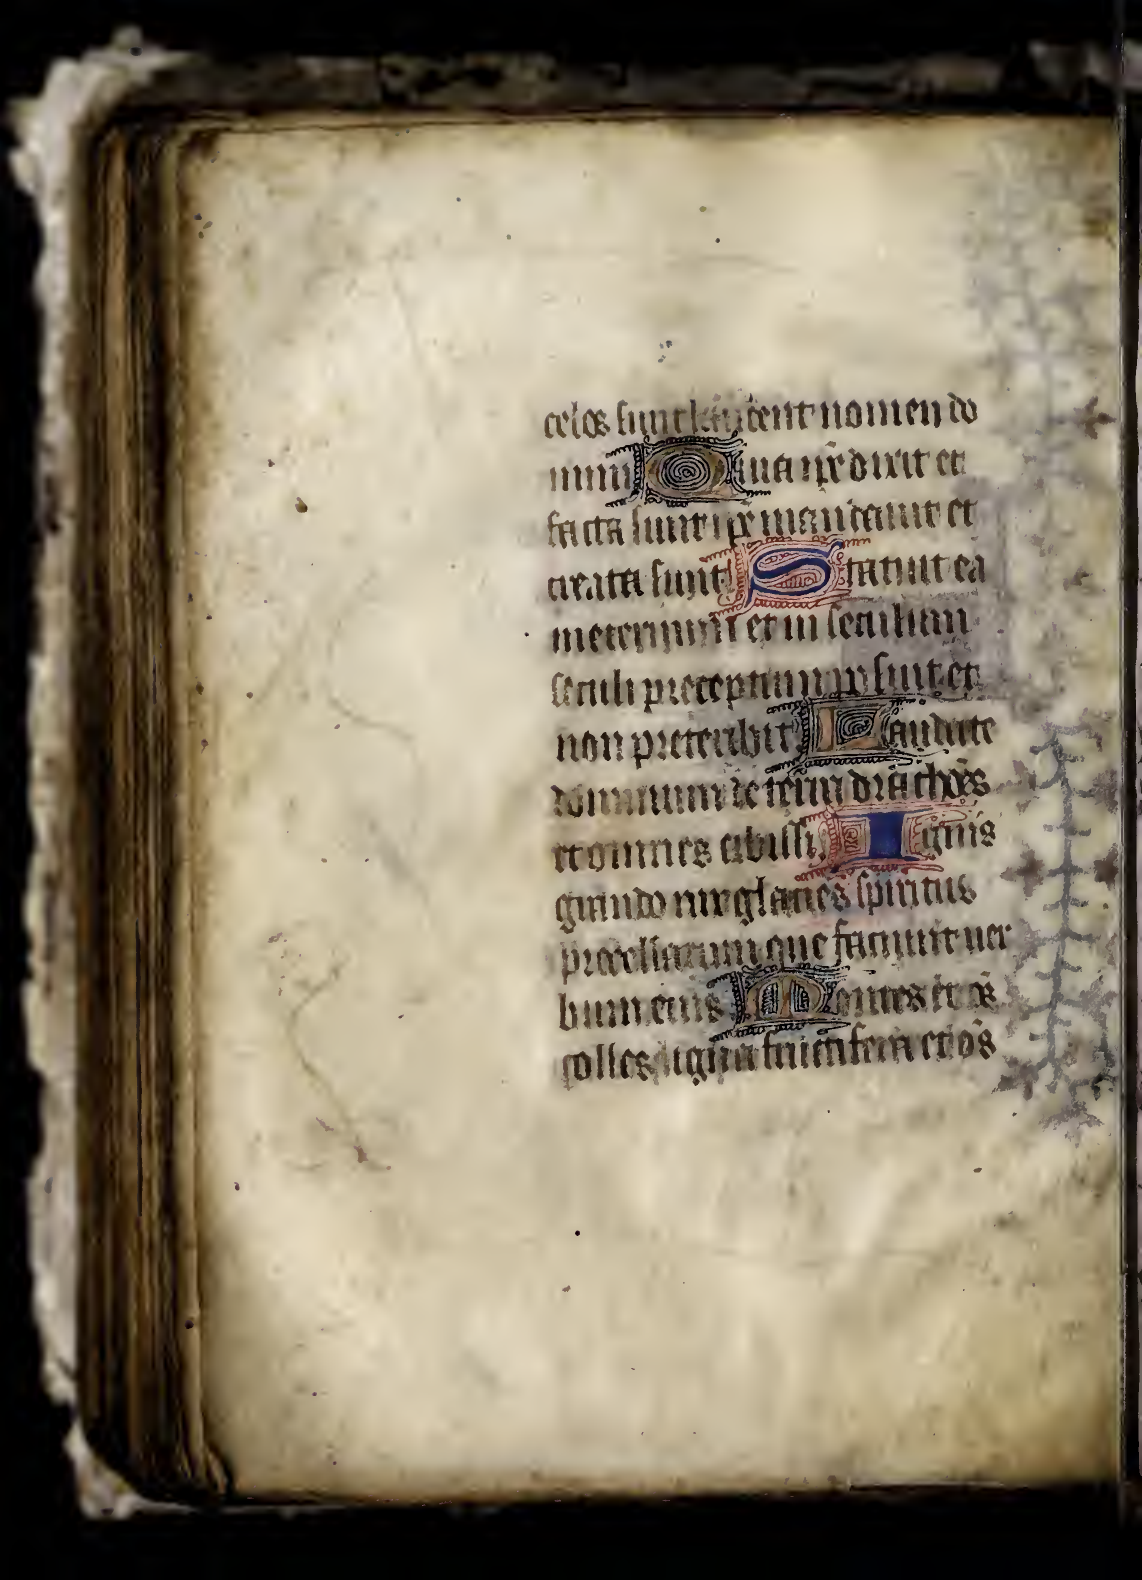 celos sunt laudent nomen do
mini Quia ipe dixit et
facta sunt ipe mandauit et
creata sunt Statuit ea
ineternum et in seculum
seculi preceptum posuit et
non preteribit Laudate
dominum de terra
et omnes abissi Ignis
grando nix glacies spiritus
procellarum que faciunt uer
bum eius Montes et oēs
colles ligna fructifera et oēs